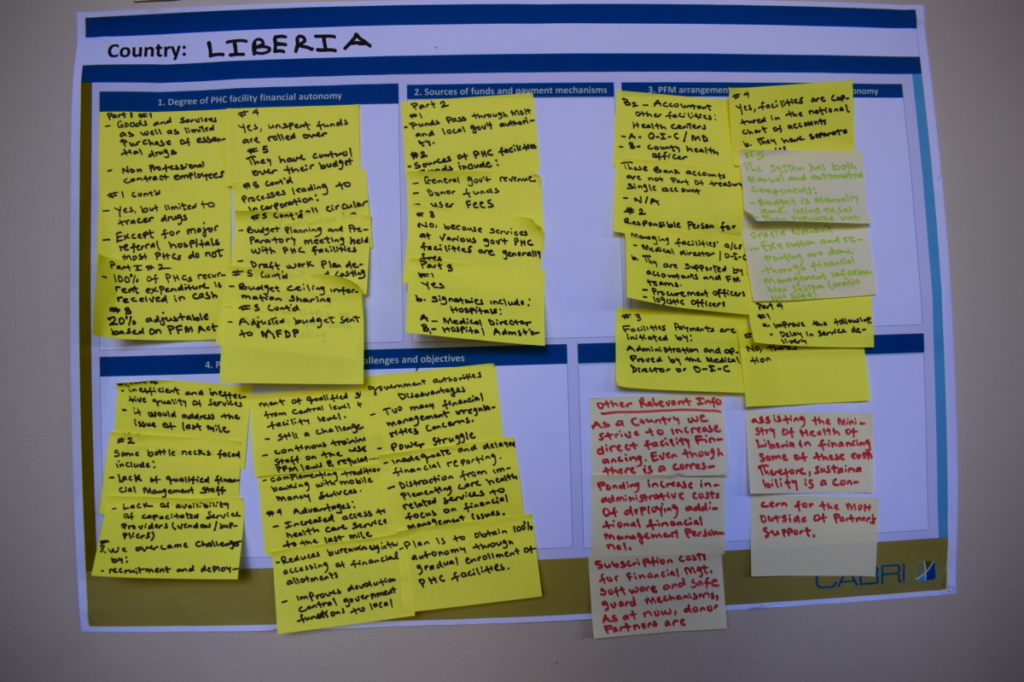 Country: LIBERIA
1. Degree of PHC facility financial autonomy
Part 1 #1
- Goods and services
as well as limited
Purchase of essen-
tial drugs
- Non Professional
contract employees
#1 cont'd
- Yes, but limited to
tracer drugs
- Except for major
referral hospitals
most PHCs do not
Part I #2
- 100% of PHCs recur-
rent expenditure is
received in cash
#3
20% adjustable
based on PFM Act
#4
Yes, unspent funds
are rolled over
#5
They have control
over their budget
#5 Cont'd
Processes leading to
incorporation:
#5 Cont'd all circular
- Budget Planning and Pre-
Paratory meeting held
with PHC facilities
- Draft work plan de-
#5 Cont'd costing
- Budget ceiling infor-
mation sharing
#5 Cont'd
- Adjusted budget sent
to MFDP
2. Sources of funds and payment mechanisms
Part 2
#1
- Funds Pass through MoH
and local gov't authori-
ty.
#2
- Sources of PHC facilities
funds include:
- General gov't revenue
- Donor funds
- user Fees
#3
No, because services
at various govt PHC
facilities are generally
free
Part 3
#1
Yes
b. Signatories include:
Hospitals:
A - Medical Director
B - Hospital Admst'br
3. PFM arrangemen
onomy
B2 - Accountant
Other facilities:
Health Centers
- A - O-I-C / MD
- B - County health
Officer
These Bank accounts
are not Part of treasury
Single account
- N/A
#2
Responsible Person for
Managing facilities'
- Medical director / O-I-C
b. They are supported by
accountants and FM
teams.
- Procurement officers
- logistic officers
#3
Facilities Payments are
initiated by:
Administration and ap-
Proved by the Medical
Director or O-I-C
#4
Yes, facilities are cap-
tured in the national
Chart of accounts
b. They have separate
#5
The system has both
Manual and automated
Components:
- Budget is manually
done using excel
- Execution and re-
Porting are done
through financial
management informa-
tion system
Part 4
#1
a. improve the following:
- Delay in service de-
livery
No,
tion
4. P
hallenges and objectives
- inefficient and ineffec-
tive quality of services
- it would address the
issue of last mile
#2
Some bottle necks faced
include:
- lack of qualified finan-
cial Mangement staff
- Lack of availibility
of capacitated Service
Providers (vendors/sup-
pliers)
3. We overcame challenges
by:
- recruitment and deploy-
ment of qualified s
from Central level t
facility level.
- Still a challenge
- continous training
Staff on the use
PFM laws & regulat
complementing tradition
banking with mobile
money services.
#4 Advantages:
- Increased access to
health care service
to the last mile
- Reduces bureaucracy with
accessing at financial
allotments
- improves devolution
Central government
functions to local
government authorities
Disadvantages
- Two many financial
management irregula-
rities concerns.
- Power Struggle
- inadequate and delayed
financial reporting.
- Distraction from im-
Plementing core health
related services to
focus on financial
Management issues.
- Plan is to obtain 100%
autonomy through
gradual enrollment of
PHC facilities.
Other Relevant Info
As a Country we
strive to increase
direct facility Fin-
ancing. Even though
there is a corres-
Ponding increase in
administrative costs
Of deploying addi-
tional financial
management Person-
nel.
Subscription costs
for Financial Mgt.
Software and Safe
guard Mechanisms,
As at now, donor
Partners are
assisting the Mini-
stry of Health of
Liberia in financing
Some of these costs
Therefore, sustaina
bility is a Con-
cern for the MOH
Outside of Partners
Support.
CABRI